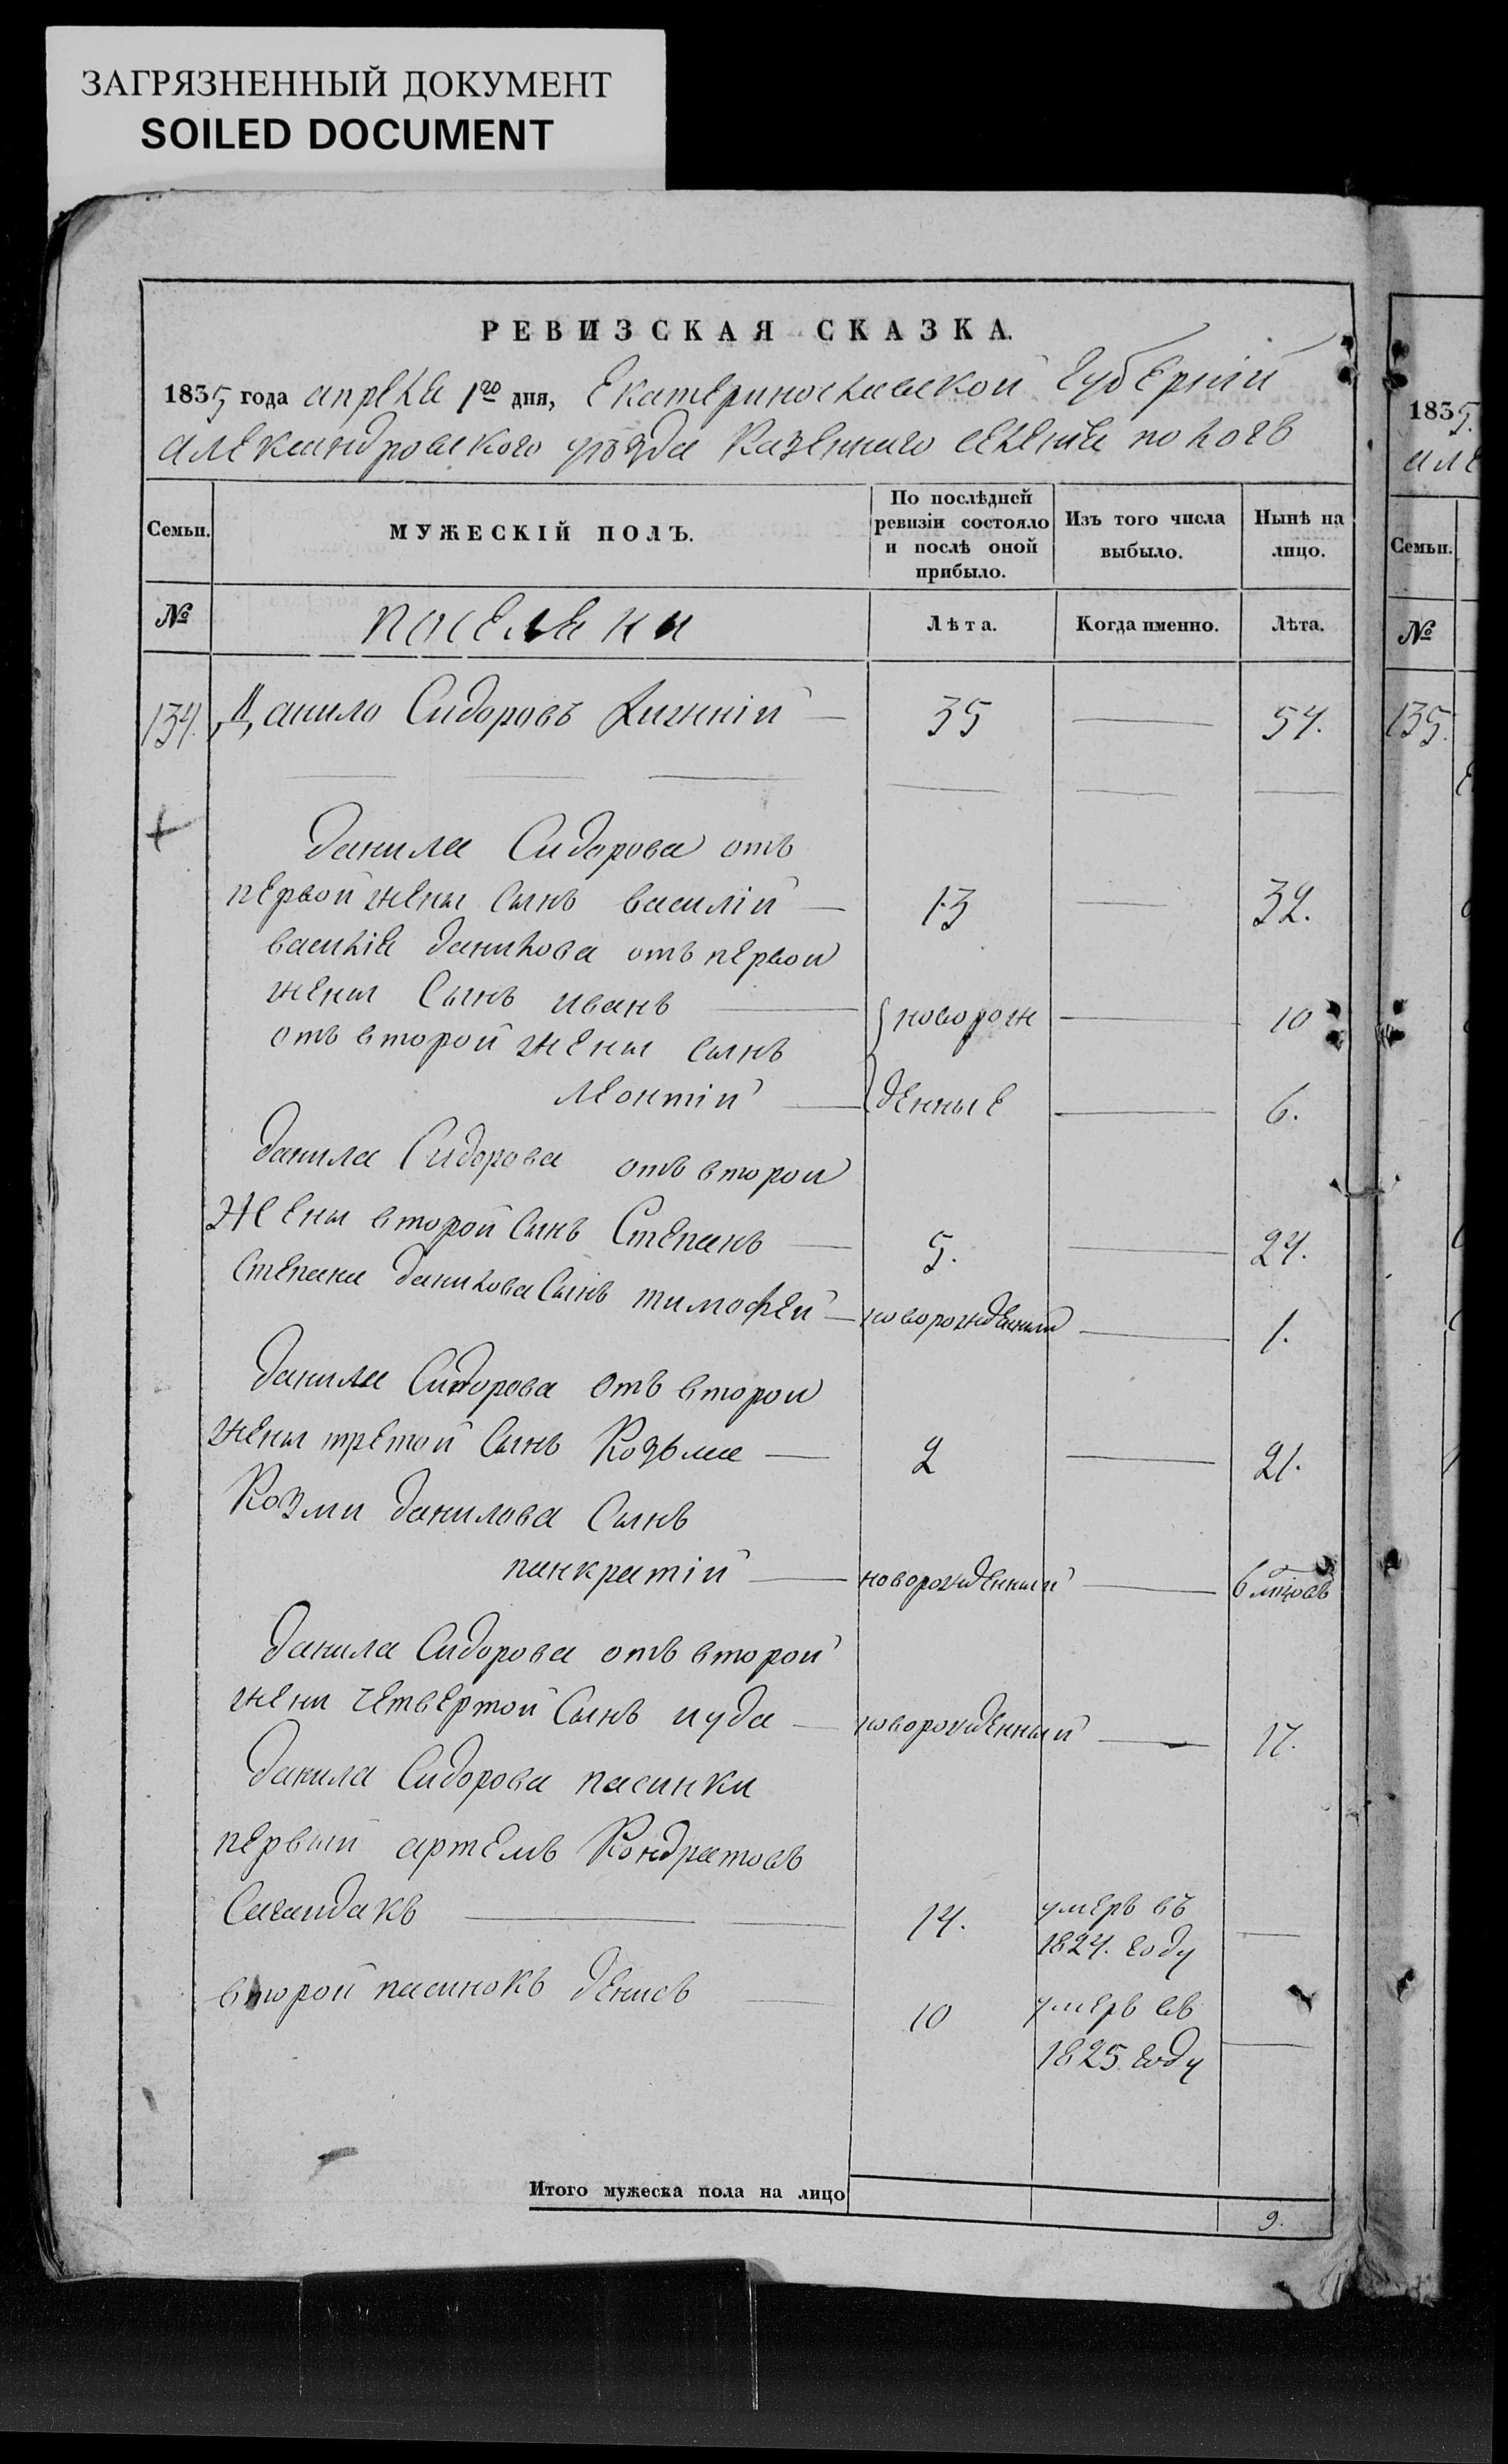 ЗАГРЯЗНЕННЫЙ ДОКУМЕНТ
SOILED DOCUMENT
РЕВИЗСКАЯ СКАЗКА.
1835 года апреля 1го дня, Екатеринославской губернии
александровского уѣзда Казенного селения пологъ
Семьи.
МУЖЕСКІЙ ПОЛЪ.
По послѣдней ревизіи состояло и послѣ оной прибыло.
Изъ того числа выбыло.
Нынѣ на лицо.
№
поселяни
Лѣта.
Когда именно.
Лѣта.
134. Данило Сидоровъ 35 54.
Данила Сидорова отъ
первой жены сынъ василій 13 32.
василія данилова отъ первой
жены Сынъ иванъ новорож 10
отъ второй жены сынъ
леонтій денные 6.
данила Сидорова отъ второй
жены второй сынъ Степанъ 5. 24.
Степана данилова Сынъ тимофей новорожденный 1.
данила Сидорова отъ второй
жены третой Сынъ Козьма 2 21.
Козми данилова Сынъ
панкратій новорожденный 6 мцовъ
данила Сидорова отъ второй
жени четвертой Сынъ иуда новорожденный 17.
данила Сидорова пасинки
первый артемъ Кондратовъ
Сагайдакъ 14. умеръ въ
1824. году
второй пасинокъ денисъ 10 умеръ въ
1825 году
Итого мужеска пола на лицо 9.
1835.
але
Семьи.
№
135.